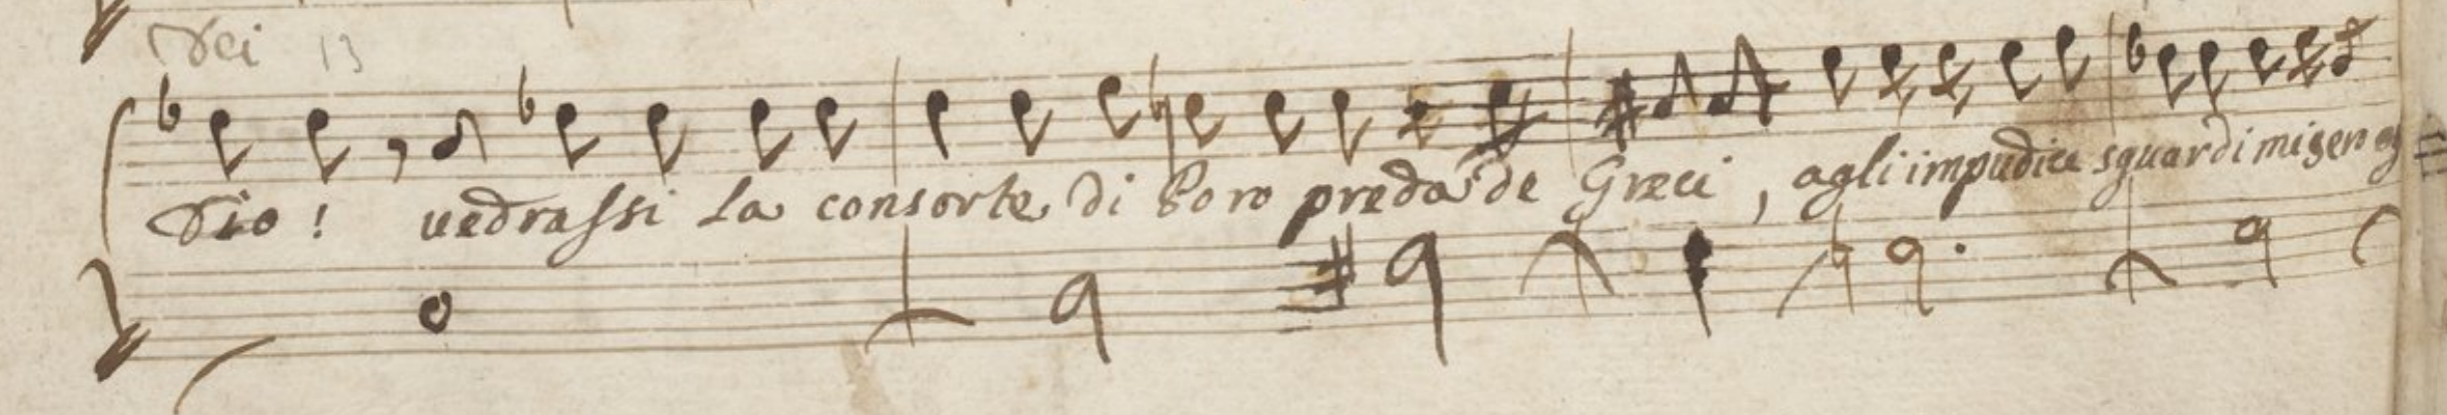 Dei 13
Dio! vedrassi la consorte di Poro preda de Greci, agli impudici sguardi misero og